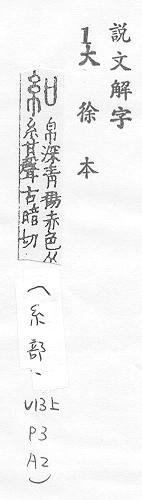 説文解字
1大徐本
紺帛深青揚赤色从
糸甘聲古暗切
(糸部、
U13上
P3
A2)